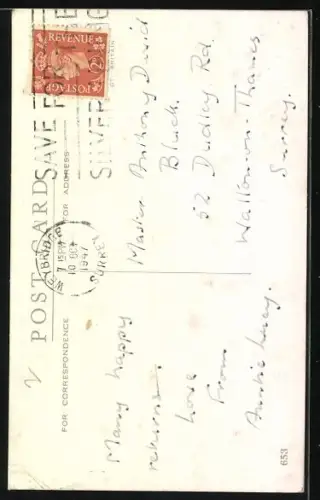 POST CARD
FOR CORRESPONDENCE
FOR ADDRESS
POSTAGE
REVENUE
SAVE FOR THE
SILVER
WEYBRIDGE
7 15 PM
10 OCT
1947
SURREY
Many happy
returns.
Love
From
Auntie Lucy.
Master Anthony David
Bluck.
52 Dudley Rd.
Walton-on-Thames
Surrey.
653